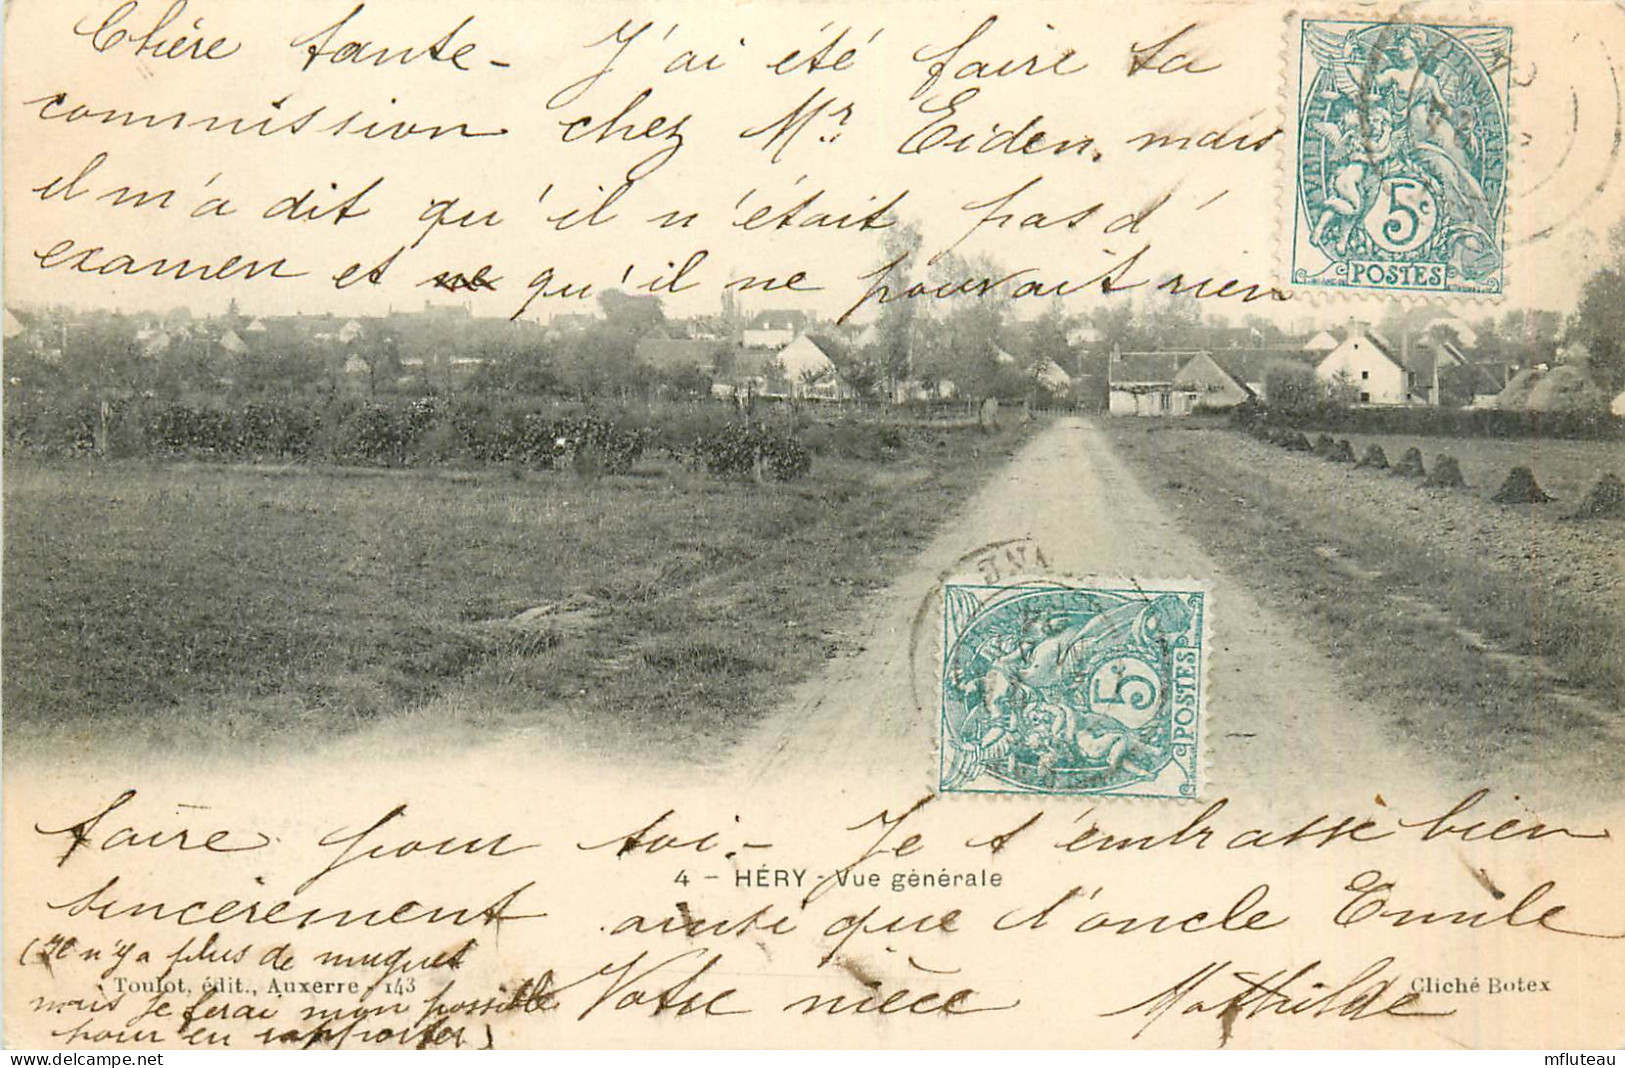 Chère tante - J'ai été faire ta
commission chez Mr. Eiden, mais
il m'a dit qu'il n'était pas d'
examen et ne qu'il ne pouvait rien
5c
POSTES
5c
POSTES
faire pour toi. - Je t'embrasse bien
4 - HÉRY - Vue générale
sincèrement ainsi que l'oncle Emile
(Il n'y a plus de muguet
Toulot, édit., Auxerre - 143
mais je ferai mon possible
pour en rapporter)
Votre nièce Mathilde
Cliché Botex
delcampe.net
mfluteau